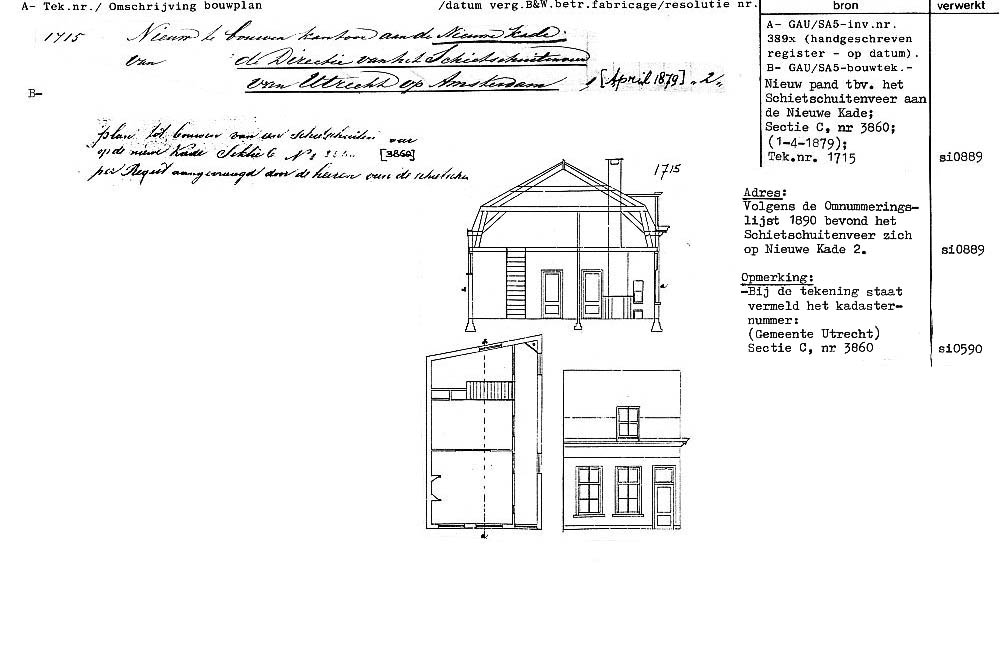 A- Tek.nr./ Omschrijving bouwplan /datum verg.B&W.betr.fabricage/resolutie nr.
1715 Nieuw te bouwen kantoor aan de Nieuwe Kade
van de Directie van het Schietschuitenveer
van Utrecht op Amsterdam 1 [April 1879] „2„
B-
plan tot bouwen van een
op de nieuwe Kade Sektie C No [3860]
per Request aangevraagd door de heeren van de
1715
bron
A- GAU/SA5-inv.nr.
389x (handgeschreven
register - op datum).
B- GAU/SA5-bouwtek.-
Nieuw pand tbv. het
Schietschuitenveer aan
de Nieuwe Kade;
Sectie C, nr 3860;
(1-4-1879);
Tek.nr. 1715
Adres:
Volgens de Omnummerings-
lijst 1890 bevond het
Schietschuitenveer zich
op Nieuwe Kade 2.
Opmerking:
-Bij de tekening staat
vermeld het kadaster-
nummer:
(Gemeente Utrecht)
Sectie C, nr 3860
verwerkt
si0889
si0889
si0590